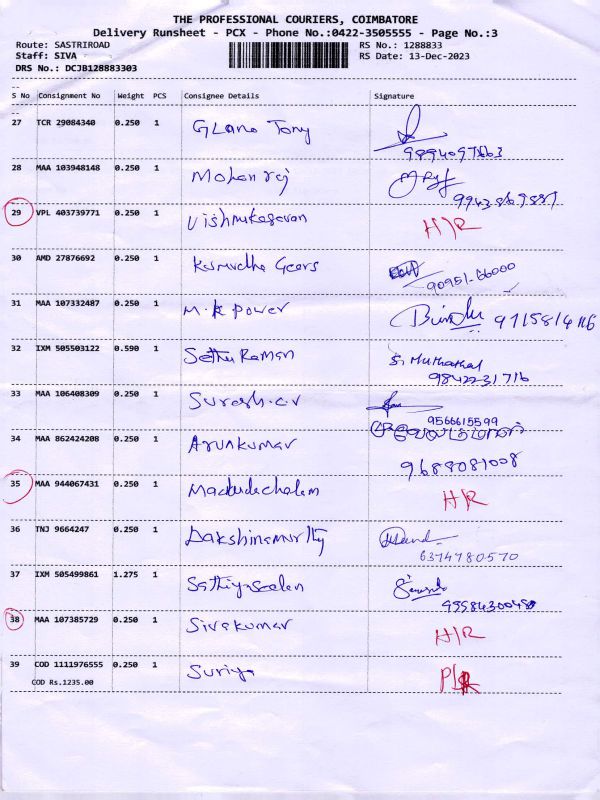 THE PROFESSIONAL COURIERS, COIMBATORE
Delivery Runsheet - PCX - Phone No.:0422-3505555 - Page No.:3
Route: SASTRIROAD RS No.: 1288833
Staff: SIVA RS Date: 13-Dec-2023
DRS No.: DCJB128883303
S No Consignment No Weight PCS Consignee Details Signature
27 TCR 29084340 0.250 1 Tony
28 MAA 103948148 0.250 1 Mohanraj
9943869887
29 VPL 403739771 0.250 1 Vishnukesavan H/R
30 AMD 27876692 0.250 1 Gears
90951-66000
31 MAA 107332487 0.250 1 M.K Power
32 IXM 505503122 0.590 1 Sethu Raman S. Muthathal
98422-31716
33 MAA 106408309 0.250 1 Suresh.C.V
9566615599
34 MAA 862424208 0.250 1 Arunkumar
9688081008
35 MAA 944067431 0.250 1 H/R
36 TNJ 9664247 0.250 1 Dakshinamurthy
6374780570
37 IXM 505499861 1.275 1 Sathiyaseelan
38 MAA 107385729 0.250 1 Sivakumar H/R
39 COD 1111976555 0.250 1 Suriya
COD Rs.1235.00